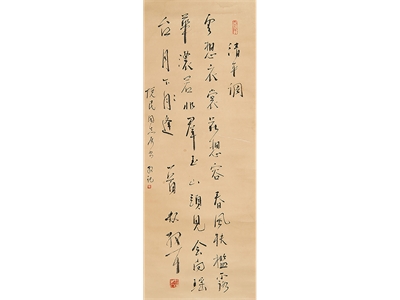 清平調
云想衣裳花想容春風拂檻露
華濃若非羣玉山頭見會向瑤
台月下逢 一首 林散耳
同志